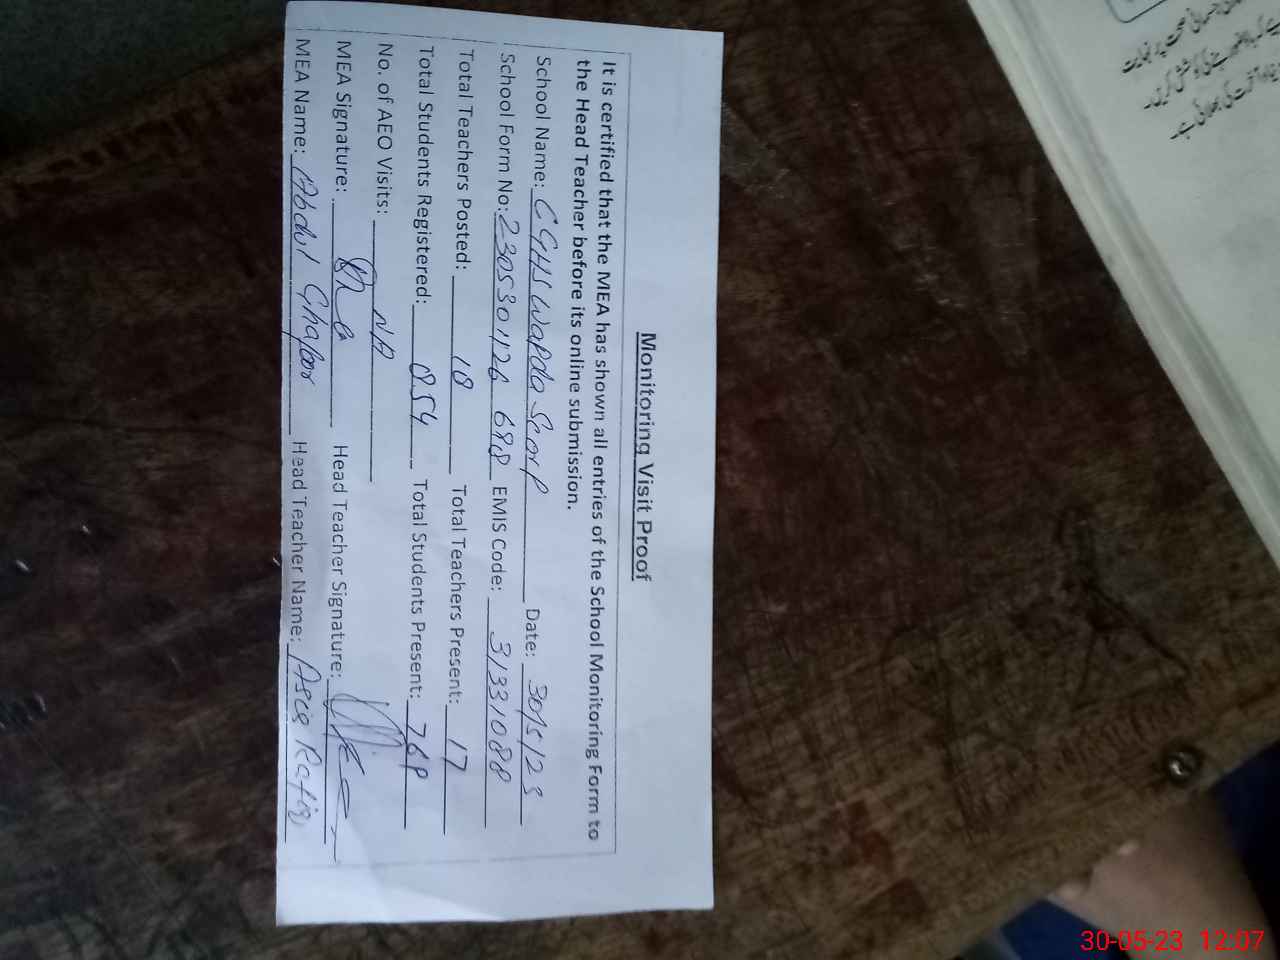 Monitoring Visit Proof
It is certified that the MEA has shown all entries of the School Monitoring Form to
the Head Teacher before its online submission.
School Name: GGHS Wapda Scarp Date: 30/5/23
School Form No: 230530112 EMIS Code: 31331088
Total Teachers Posted: 18 Total Teachers Present: 17
Total Students Registered: 854 Total Students Present:
No. of AEO Visits: NA
MEA Signature: Head Teacher Signature:
MEA Name: Abdul Ghafoor Head Teacher Name: Asia Rafiq
30-05-23 12:07